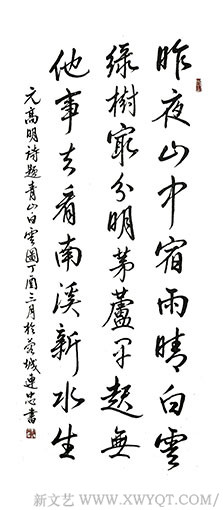 昨夜山中宿雨晴白雲
綠樹最分明茅蘆早起無
他事去看南溪新水生
元高明詩題青山白雲圖丁酉三月於蓉城連忠書
新文艺 / WWW.XWYQT.COM